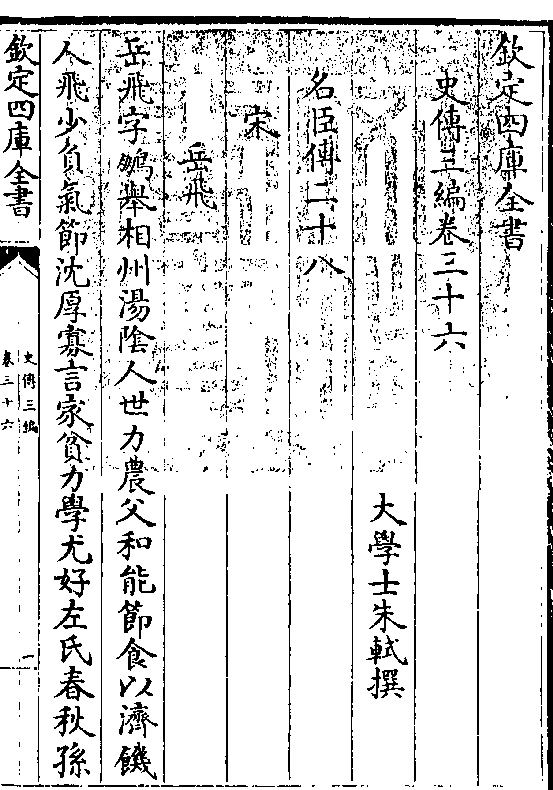 欽定四庫全書
史傳三編卷三十六
大學士朱軾撰
名臣傳二十八
宋
岳飛
岳飛字鵬舉相州湯陰人世力農父和能節食以濟饑
人飛少負氣節沈厚寡言家貧力學尤好左氏春秋孫
欽定四庫全書
史傳三編
卷三十六
一